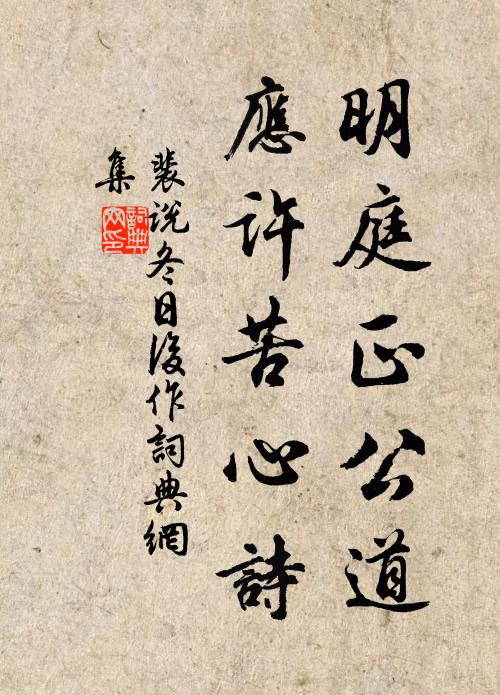 明庭正公道
應許苦心詩
裴説冬日後作詞典網
集
詞典网印